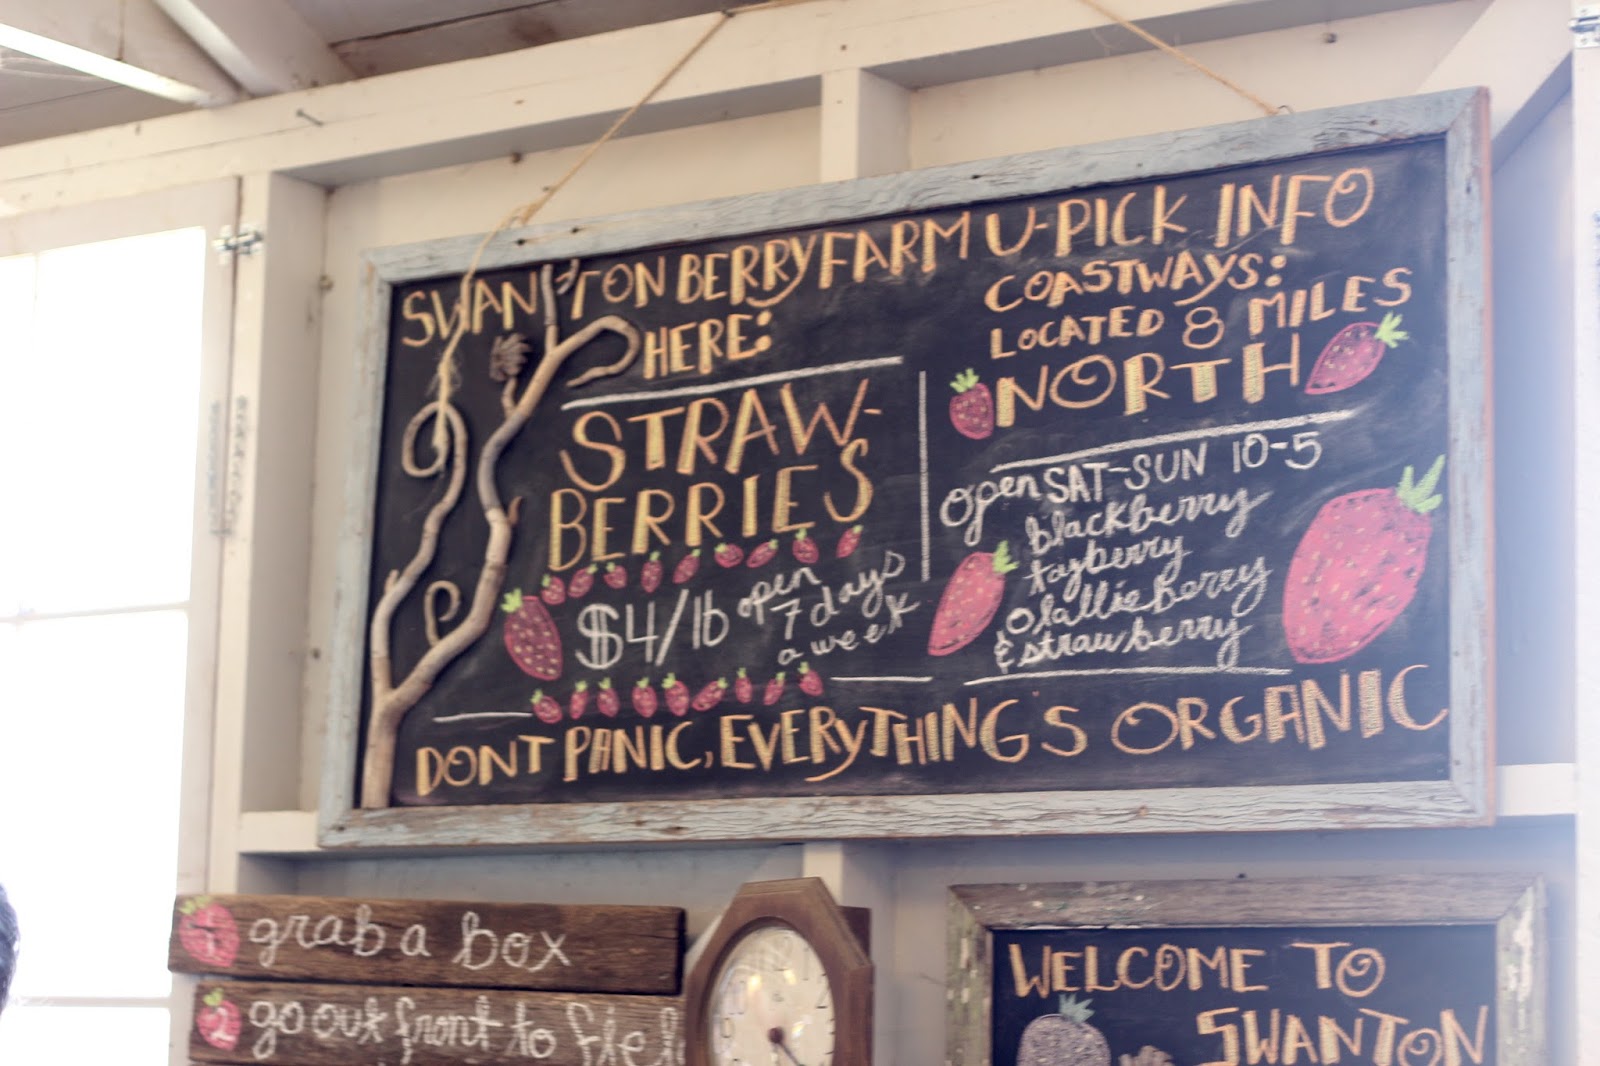 SWANTON BERRY FARM U-PICK INFO
HERE:
STRAW-
BERRIES
$4/lb open
7 days
a week
COASTWAYS:
LOCATED 8 MILES
NORTH
open SAT-SUN 10-5
blackberry
tayberry
olallieberry
& strawberry
DONT PANIC, EVERYTHING'S ORGANIC
1 grab a box
2 go out front to fiel
WELCOME TO
SWANTON